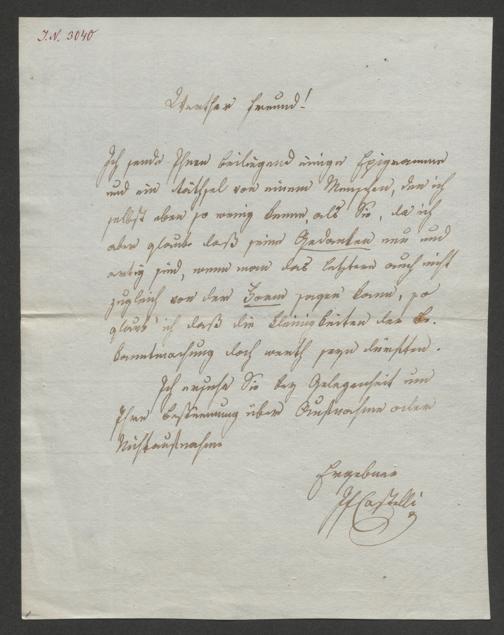 I.N. 3040
Werther Freund!
Ich sende Ihnen beiliegend einige Epigramme
und ein Räthsel von einem Menschen, den ich
selbst eben so wenig kenne, als Sie, da ich
aber glaube daß seine Gedanken neu und
artig sind, wenn man das letztere auch nicht
zugleich von der Form sagen kann, so
glaub ich daß die Kleinigkeiten der Be-
kanntmachung doch werth seyn dürften.
Ich ersuche Sie bey Gelegenheit um
Ihre Bestimmung über Aufnahme oder
Nichtaufnahme
Ergebner
Castelli